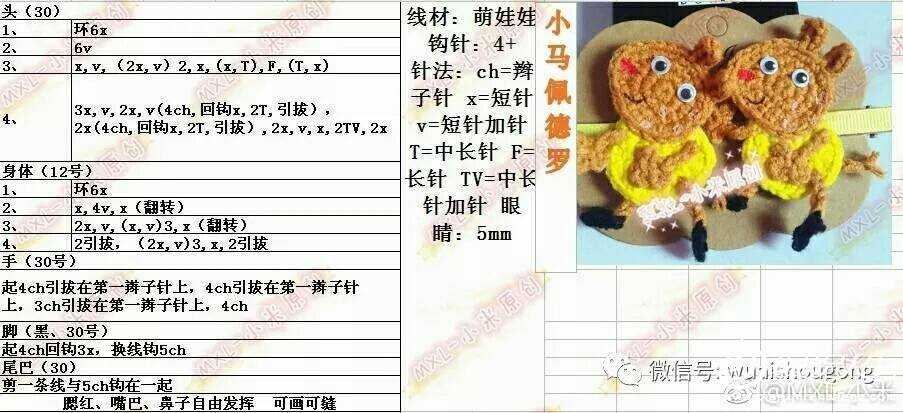 头（30）
1、 环6x
2、 6v
3、 x,v,（2x,v）2,x,(x,T),F,(T,x)
4、 3x,v,2x,v(4ch,回钩x,2T,引拔），
2x(4ch,回钩x,2T,引拔),2x,v,x,2TV,2x
身体（12号）
1、 环6x
2、 x,4v,x（翻转）
3、 2x,v,(x,v)3,x（翻转）
4、 2引拔，（2x,v)3,x,2引拔
手（30号）
起4ch引拔在第一辫子针上，4ch引拔在第一辫子针
上，3ch引拔在第一辫子针上，4ch
脚（黑、30号）
起4ch回钩3x，换线钩5ch
尾巴（30）
剪一条线与5ch钩在一起
腮红、嘴巴、鼻子自由发挥 可画可缝
线材：萌娃娃
钩针：4+
针法：ch=辫
子针 x=短针
v=短针加针
T=中长针 F=
长针 TV=中长
针加针 眼
睛：5mm
小马佩德罗
MXL-小米原创
微信号: wunishougong